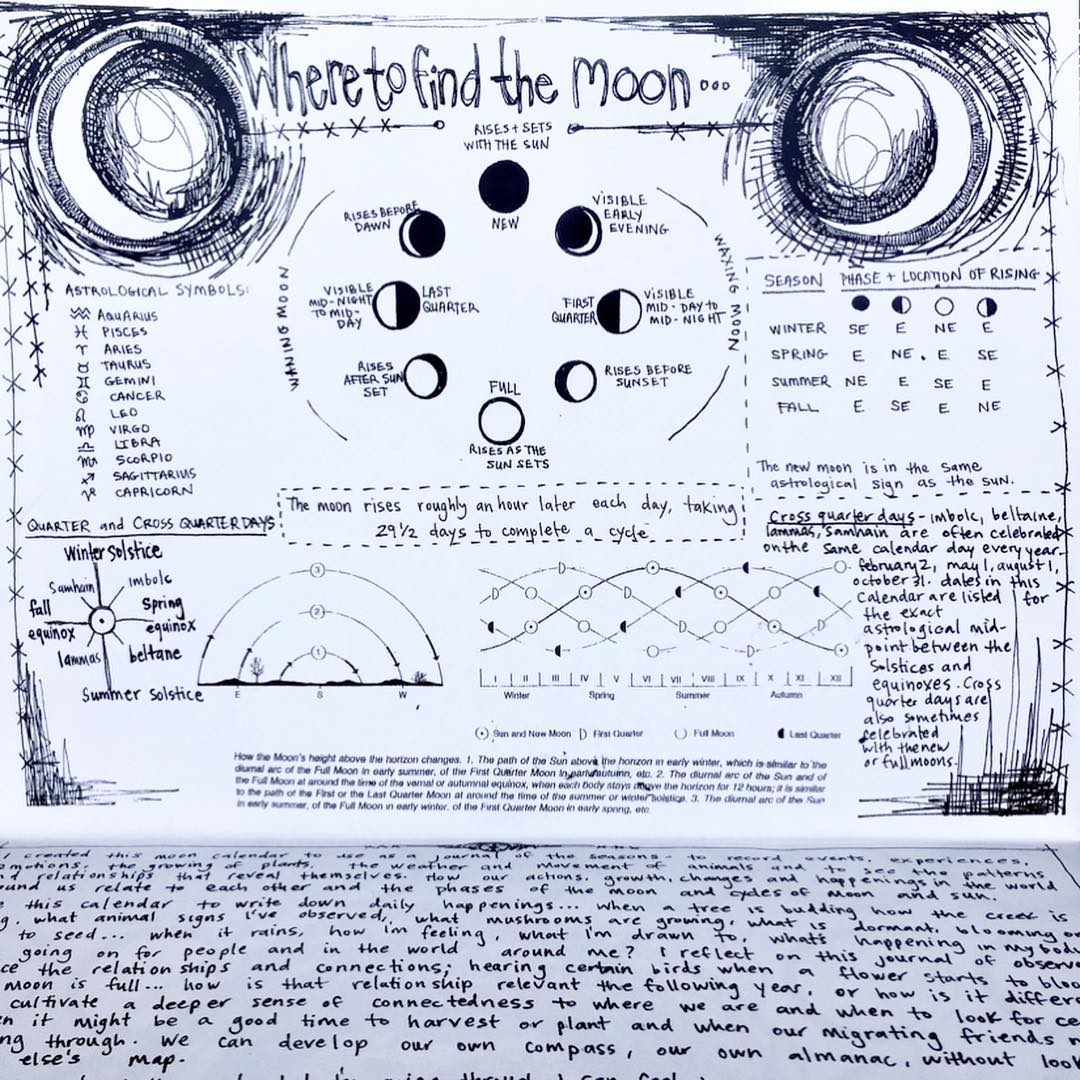 Where to find the moon...
RISES + SETS
WITH THE SUN
NEW
RISES BEFORE
DAWN
VISIBLE
EARLY
EVENING
VISIBLE
MID-NIGHT
TO MID-
DAY
LAST
QUARTER
FIRST
QUARTER
VISIBLE
MID-DAY to
MID-NIGHT
RISES
AFTER SUN
SET
RISES BEFORE
SUNSET
FULL
RISES AS THE
SUN SETS
WANING MOON
WAXING MOON
ASTROLOGICAL SYMBOLS:
♒ AQUARIUS
♓ PISCES
♈ ARIES
♉ TAURUS
♊ GEMINI
♋ CANCER
♌ LEO
♍ VIRGO
♎ LIBRA
♏ SCORPIO
♐ SAGITTARIUS
♑ CAPRICORN
SEASON PHASE + LOCATION OF RISING
WINTER SE E NE E
SPRING E NE. E SE
SUMMER NE E SE E
FALL E SE E NE
The new moon is in the same
astrological sign as the sun.
The moon rises roughly an hour later each day, taking
29 1/2 days to complete a cycle
QUARTER and CROSS QUARTER DAYS
Winter Solstice
Samhain
imbolc
fall
equinox
Spring
equinox
lammas
beltane
Summer Solstice
3
2
1
E S W
I II III IV V VI VII VIII IX X XI XII
Winter Spring Summer Autumn
Sun and New Moon First Quarter Full Moon Last Quarter
Cross quarter days - imbolc, beltaine,
lammas, Samhain are often celebrated
on the same calendar day every year-
february 2, may 1, august 1,
october 31. dates in this
Calendar are listed for
the exact
astrological mid-
point between the
Solstices and
equinoxes. Cross
quarter days are
also sometimes
celebrated
with the new
or full moons.
How the Moon's height above the horizon changes. 1. The path of the Sun above the horizon in early winter, which is similar to the
diurnal arc of the Full Moon in early summer, of the First Quarter Moon in early autumn, etc. 2. The diurnal arc of the Sun and of
the Full Moon at around the time of the vernal or autumnal equinox, when each body stays above the horizon for 12 hours; it is similar
to the path of the First or the Last Quarter Moon at around the time of the summer or winter solstice. 3. The diurnal arc of the Sun
in early summer, of the Full Moon in early winter, of the First Quarter Moon in early spring, etc.
I created this moon calendar to use as a journal of the seasons - to record events, experiences,
emotions, the growing of plants, the weather and movement of animals and to see the patterns
relationships that reveal themselves. How our actions, growth, changes and happenings in the world
us relate to each other and the phases of the moon and cycles of moon and sun.
this calendar to write down daily happenings... when a tree is budding how the creek is
what animal signs I've observed, what mushrooms are growing, what is dormant, blooming or
to seed... when it rains, how I'm feeling, what I'm drawn to, what's happening in my body
going on for people and in the world around me? I reflect on this journal of
the relationships and connections; hearing certain birds when a flower starts to
moon is full... how is that relationship relevant the following year, or how is it
cultivate a deeper sense of connectedness to where we are and when to look for
it might be a good time to harvest or plant and when our migrating friends
through. We can develop our own compass, our own almanac, without
else's map.